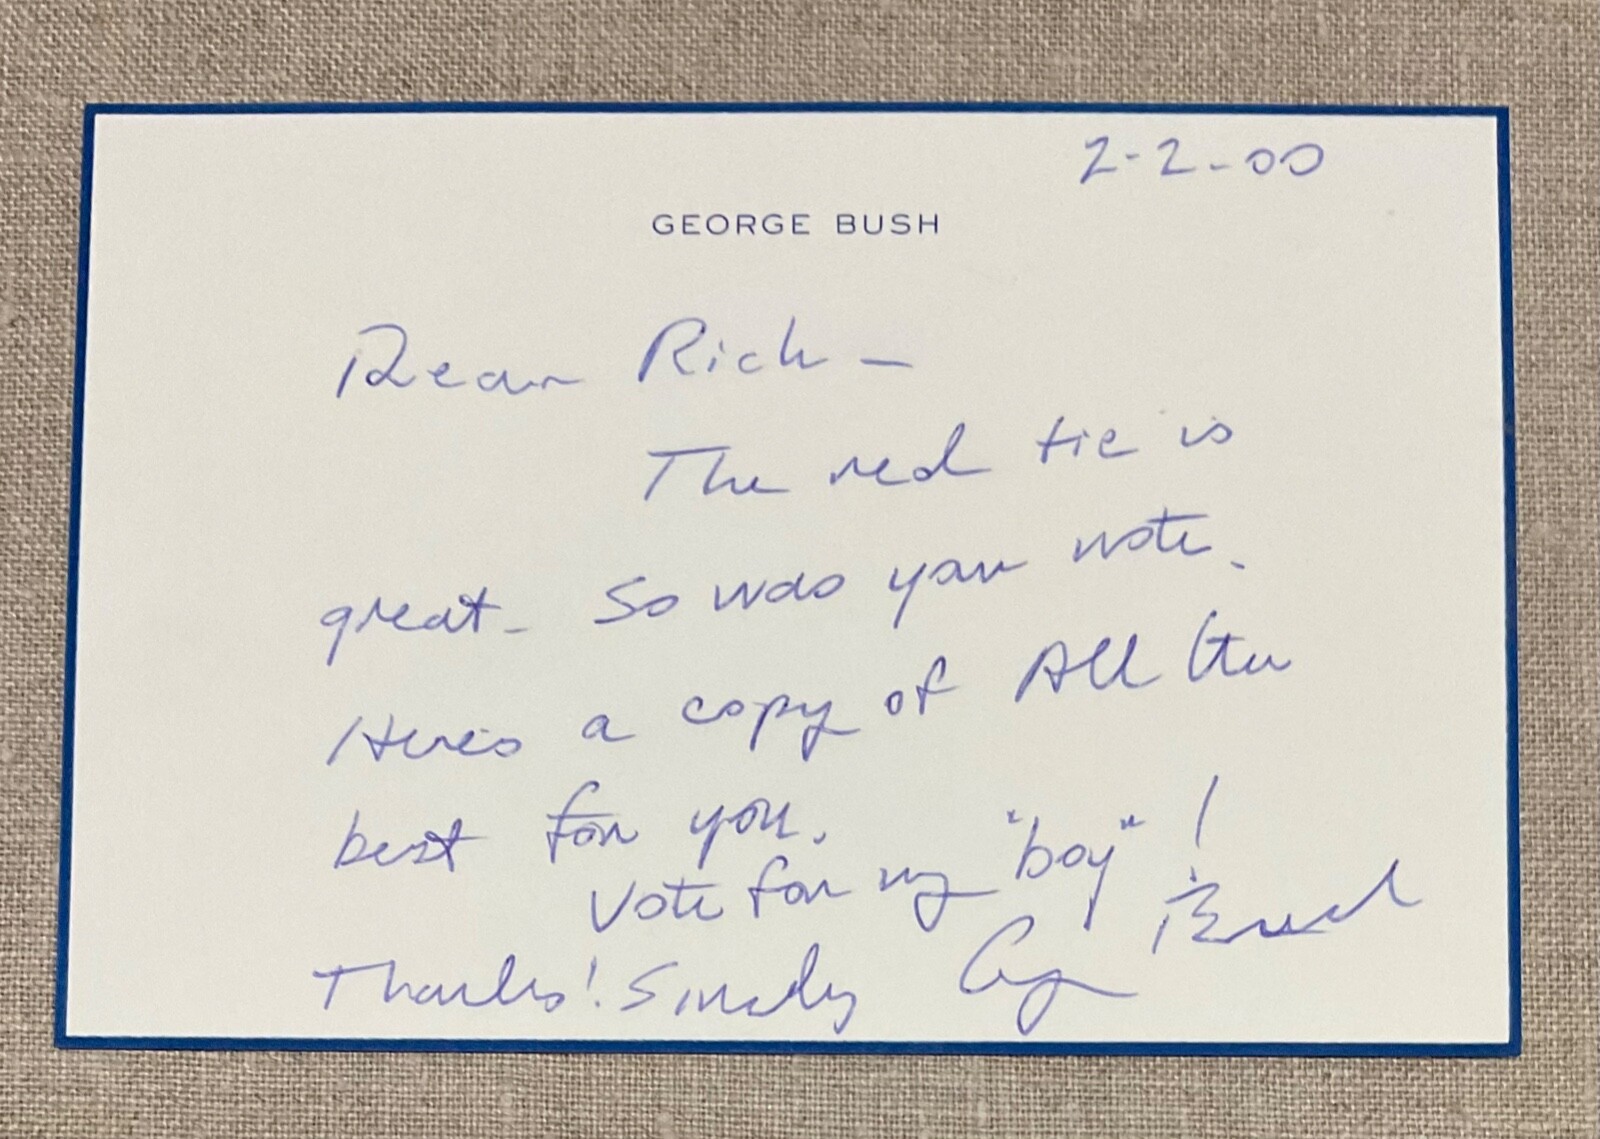 2-2-00
GEORGE BUSH
Dear Rich —
The red tie is
great. So was your note.
Here's a copy of All the
best for you.
Vote for my "boy"!
Thanks! Sincerely George Bush